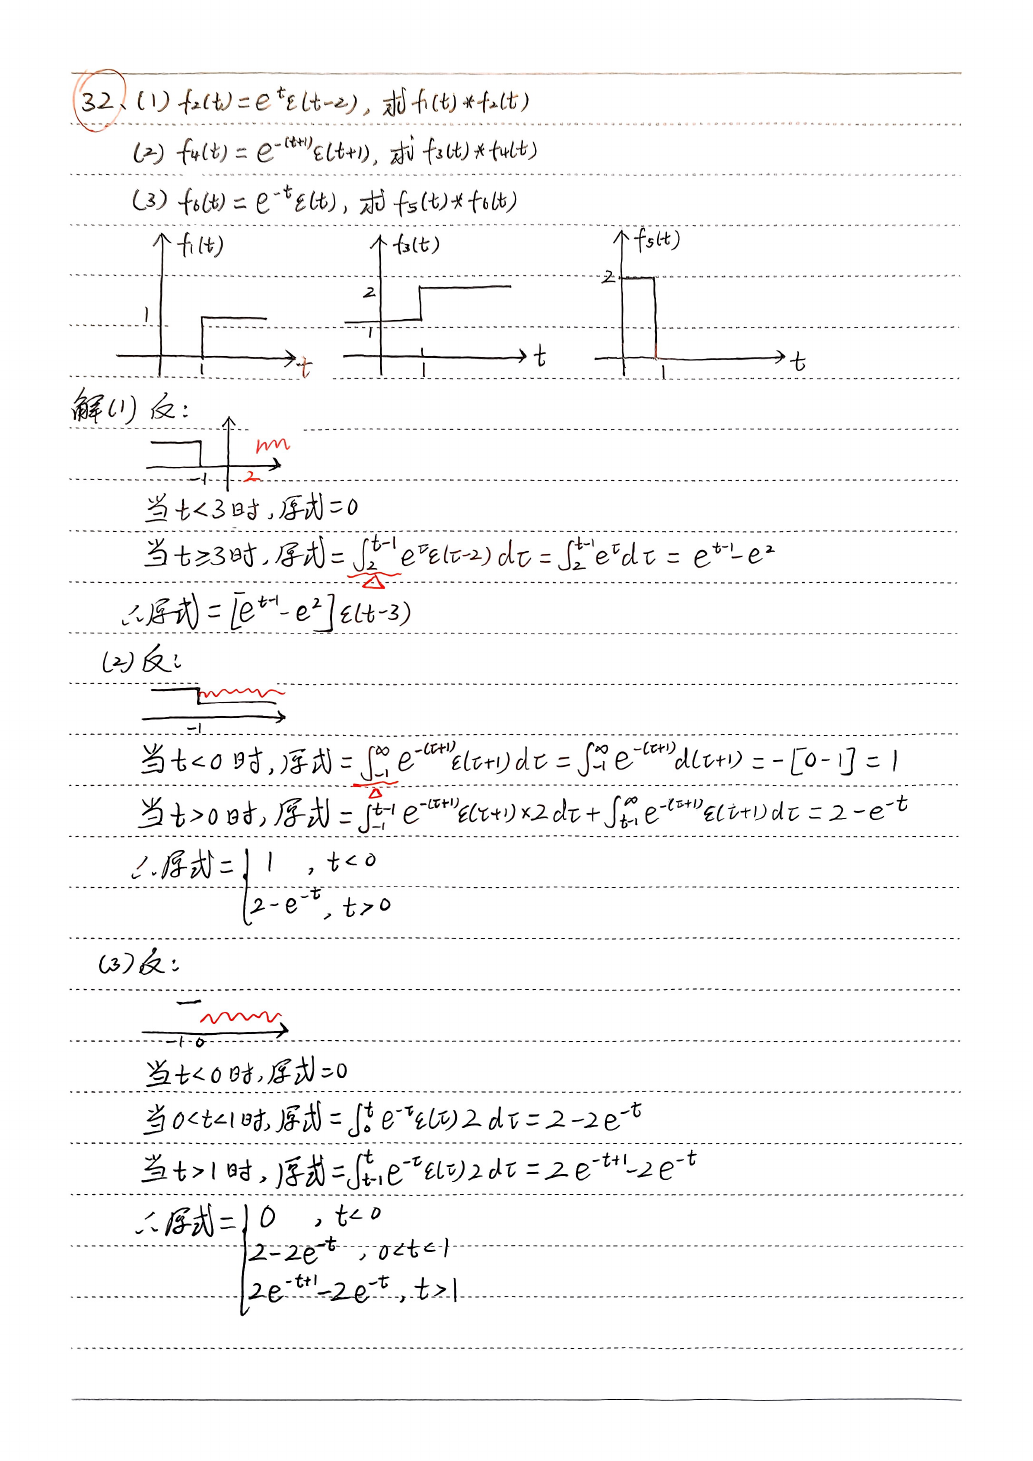 32、(1) f₂(t)=e^t ε(t-2), 求f₁(t)*f₂(t)
(2) f₄(t)=e^{-(t+1)}ε(t+1), 求f₃(t)*f₄(t)
(3) f₆(t)=e^{-t}ε(t), 求f₅(t)*f₆(t)
f₁(t) 1 1 t
f₃(t) 2 1 1 t
f₅(t) 2 1 t
解(1) 反:
-1 2
当t<3时,原式=0
当t≥3时,原式=∫₂^{t-1} e^τ ε(τ-2)dτ=∫₂^{t-1} e^τ dτ=e^{t-1}-e²
∴原式=[e^{t-1}-e²]ε(t-3)
(2)反:
-1
当t<0时,原式=∫₋₁^∞ e^{-(τ+1)}ε(τ+1)dτ=∫₋₁^∞ e^{-(τ+1)}d(τ+1)=-[0-1]=1
当t>0时,原式=∫₋₁^{t-1} e^{-(τ+1)}ε(τ+1)×2dτ+∫_{t-1}^∞ e^{-(τ+1)}ε(τ+1)dτ=2-e^{-t}
∴原式={1 , t<0
2-e^{-t}, t>0
(3)反:
-1 0
当t<0时,原式=0
当0<t<1时,原式=∫₀^t e^{-τ}ε(τ)2dτ=2-2e^{-t}
当t>1时,原式=∫_{t-1}^t e^{-τ}ε(τ)2dτ=2e^{-t+1}-2e^{-t}
∴原式={0 , t<0
2-2e^{-t} , 0<t<1
2e^{-t+1}-2e^{-t}, t>1